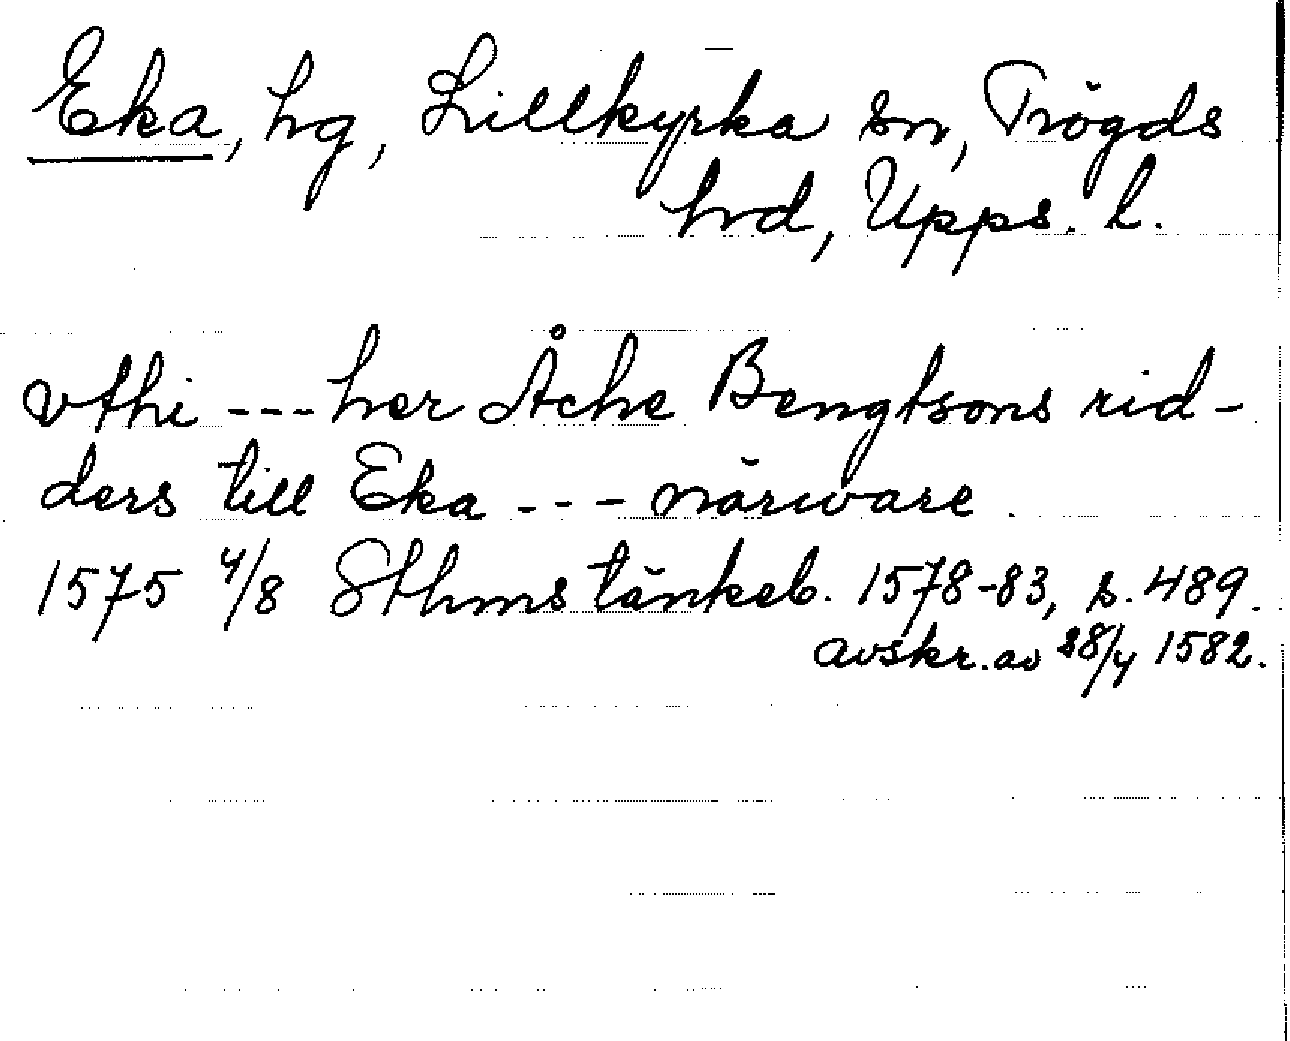 Eka, hg, Lillkyrka sn, Trögds
hrd, Upps. l.
vthi --- her Åche Bengtsons rid-
ders till Eka --- närware.
1575 4/8 Sthms tänkeb. 1578-83, s. 489.
avskr. av 28/4 1582.